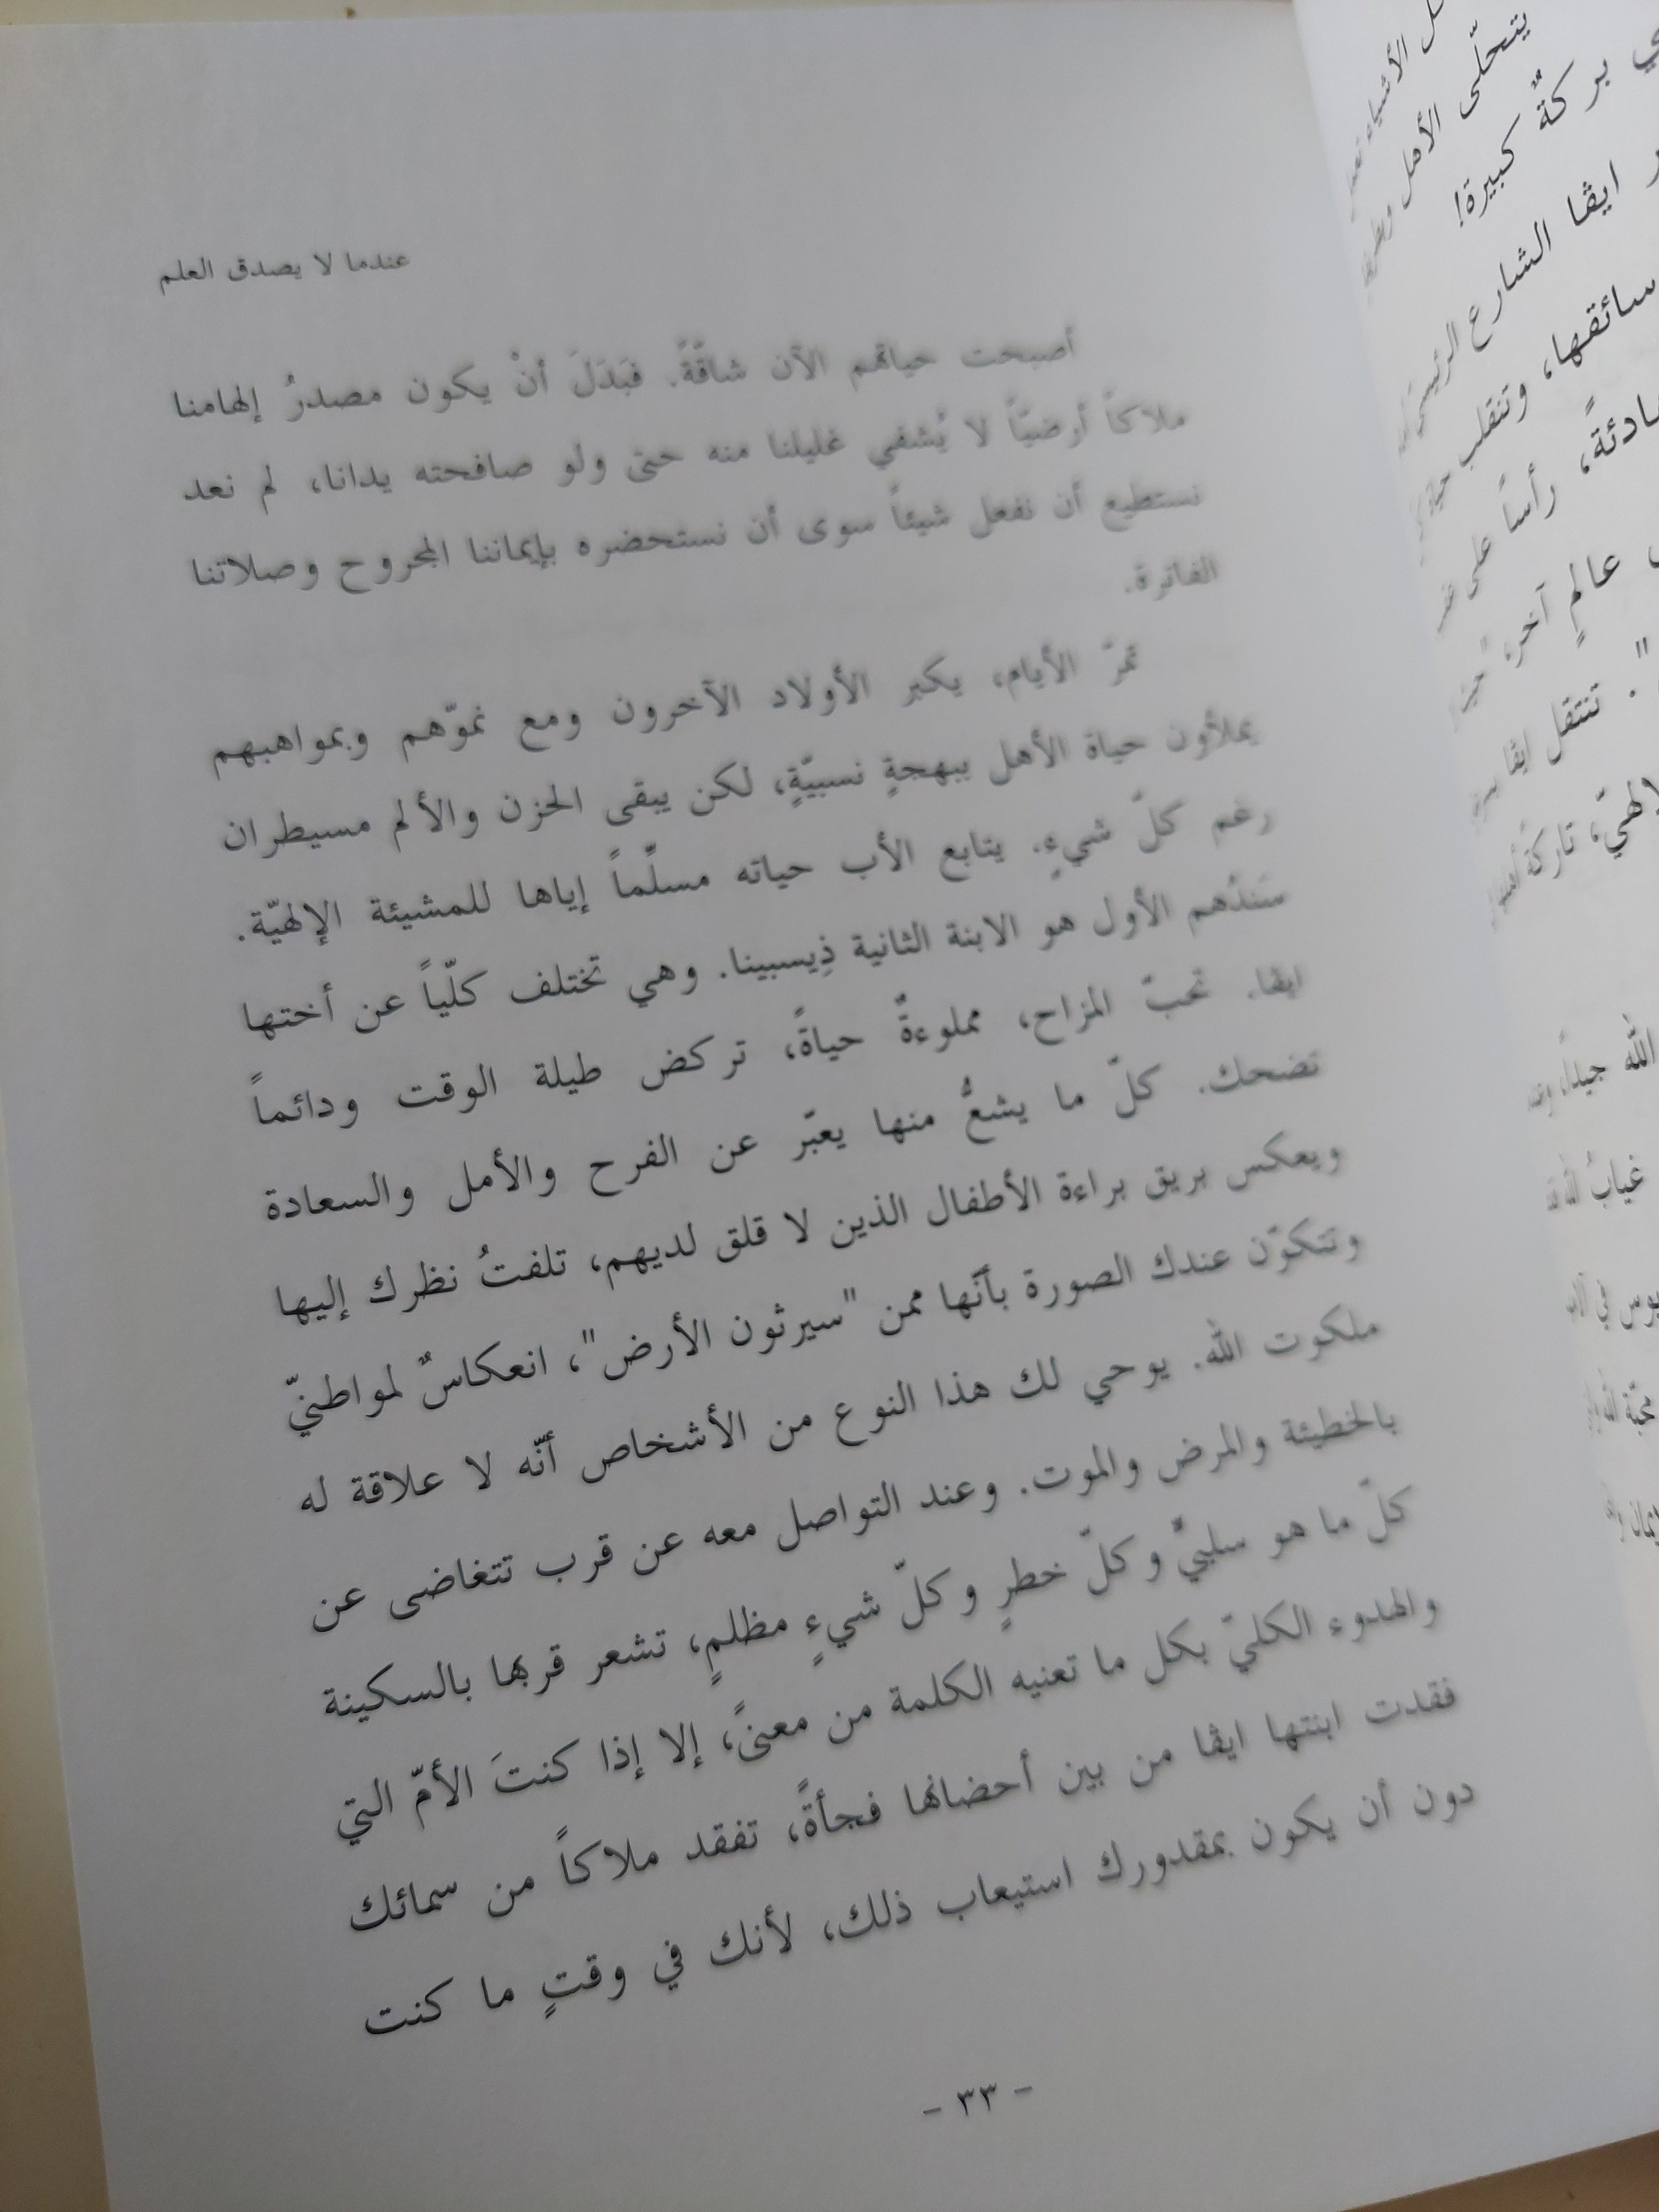 عندما لا يصدق العلم
أصبحت حياتهم الآن شاقّةً. فبَدَلَ أنْ يكون مصدرُ إلهامنا
ملاكاً أرضيّاً لا يُشفي غليلنا منه حتى ولو صافحته يدانا، لم نعد
نستطيع أن نفعل شيئاً سوى أن نستحضره بإيماننا المجروح وصلاتنا
الفاترة.
تمرّ الأيام، يكبر الأولاد الآخرون ومع نموّهم وبمواهبهم
يملأون حياة الأهل ببهجةٍ نسبيّةٍ، لكن يبقى الحزن والألم مسيطران
رغم كلّ شيءٍ. يتابع الأب حياته مسلّماً إياها للمشيئة الإلهيّة.
سَندُهم الأول هو الابنة الثانية ذِيسبينا. وهي تختلف كلّياً عن أختها
ايڤا. تحبّ المزاح، مملوءةٌ حياةً، تركض طيلة الوقت ودائماً
تضحك. كلّ ما يشعُّ منها يعبّر عن الفرح والأمل والسعادة
ويعكس بريق براءة الأطفال الذين لا قلق لديهم، تلفتُ نظرك إليها
وتتكوّن عندك الصورة بأنّها ممن "سيرثون الأرض"، انعكاسٌ لمواطنيّ
ملكوت الله. يوحي لك هذا النوع من الأشخاص أنّه لا علاقة له
بالخطيئة والمرض والموت. وعند التواصل معه عن قرب تتغاضى عن
كلّ ما هو سلبيٌّ وكلّ خطرٍ وكلّ شيءٍ مظلمٍ، تشعر قربها بالسكينة
والهدوء الكليّ بكل ما تعنيه الكلمة من معنىً، إلا إذا كنتَ الأمّ التي
فقدت ابنتها ايڤا من بين أحضانها فجأةً، تفقد ملاكاً من سمائك
دون أن يكون بمقدورك استيعاب ذلك، لأنك في وقتٍ ما كنت
- ٣٣ -
يتحلّى الأهل
بركةٌ كبيرة!
ايڤا الشارع الرئيسي
سائقها، وتنقلب
رأساً على
عالمٍ آخر،
". تنتقل ايڤا
تاركةً
الله جيداً،
غيابُ الله
في
محبّة الله